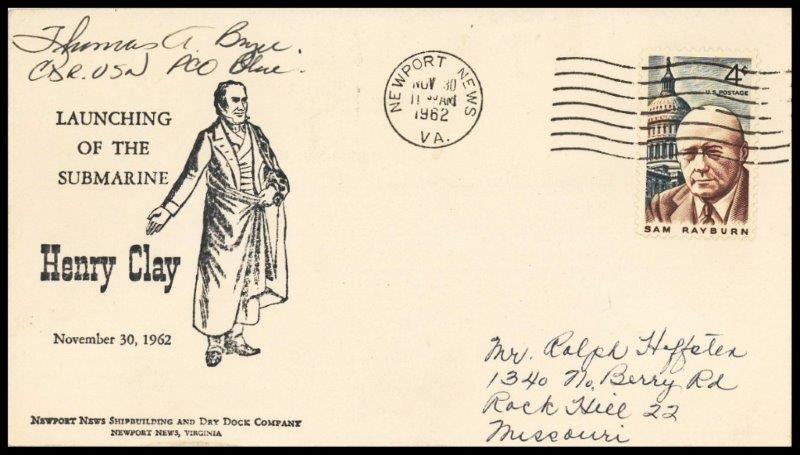 Thomas A. Bryce.
CDR. USN PCO Blue.
LAUNCHING
OF THE
SUBMARINE
Henry Clay
November 30, 1962
NEWPORT NEWS SHIPBUILDING AND DRY DOCK COMPANY
NEWPORT NEWS, VIRGINIA
NEWPORT NEWS
NOV 30
11 AM
1962
VA.
4¢
U.S. POSTAGE
SAM RAYBURN
Mr. Ralph Hoffsten
1340 No. Berry Rd
Rock Hill 22
Missouri